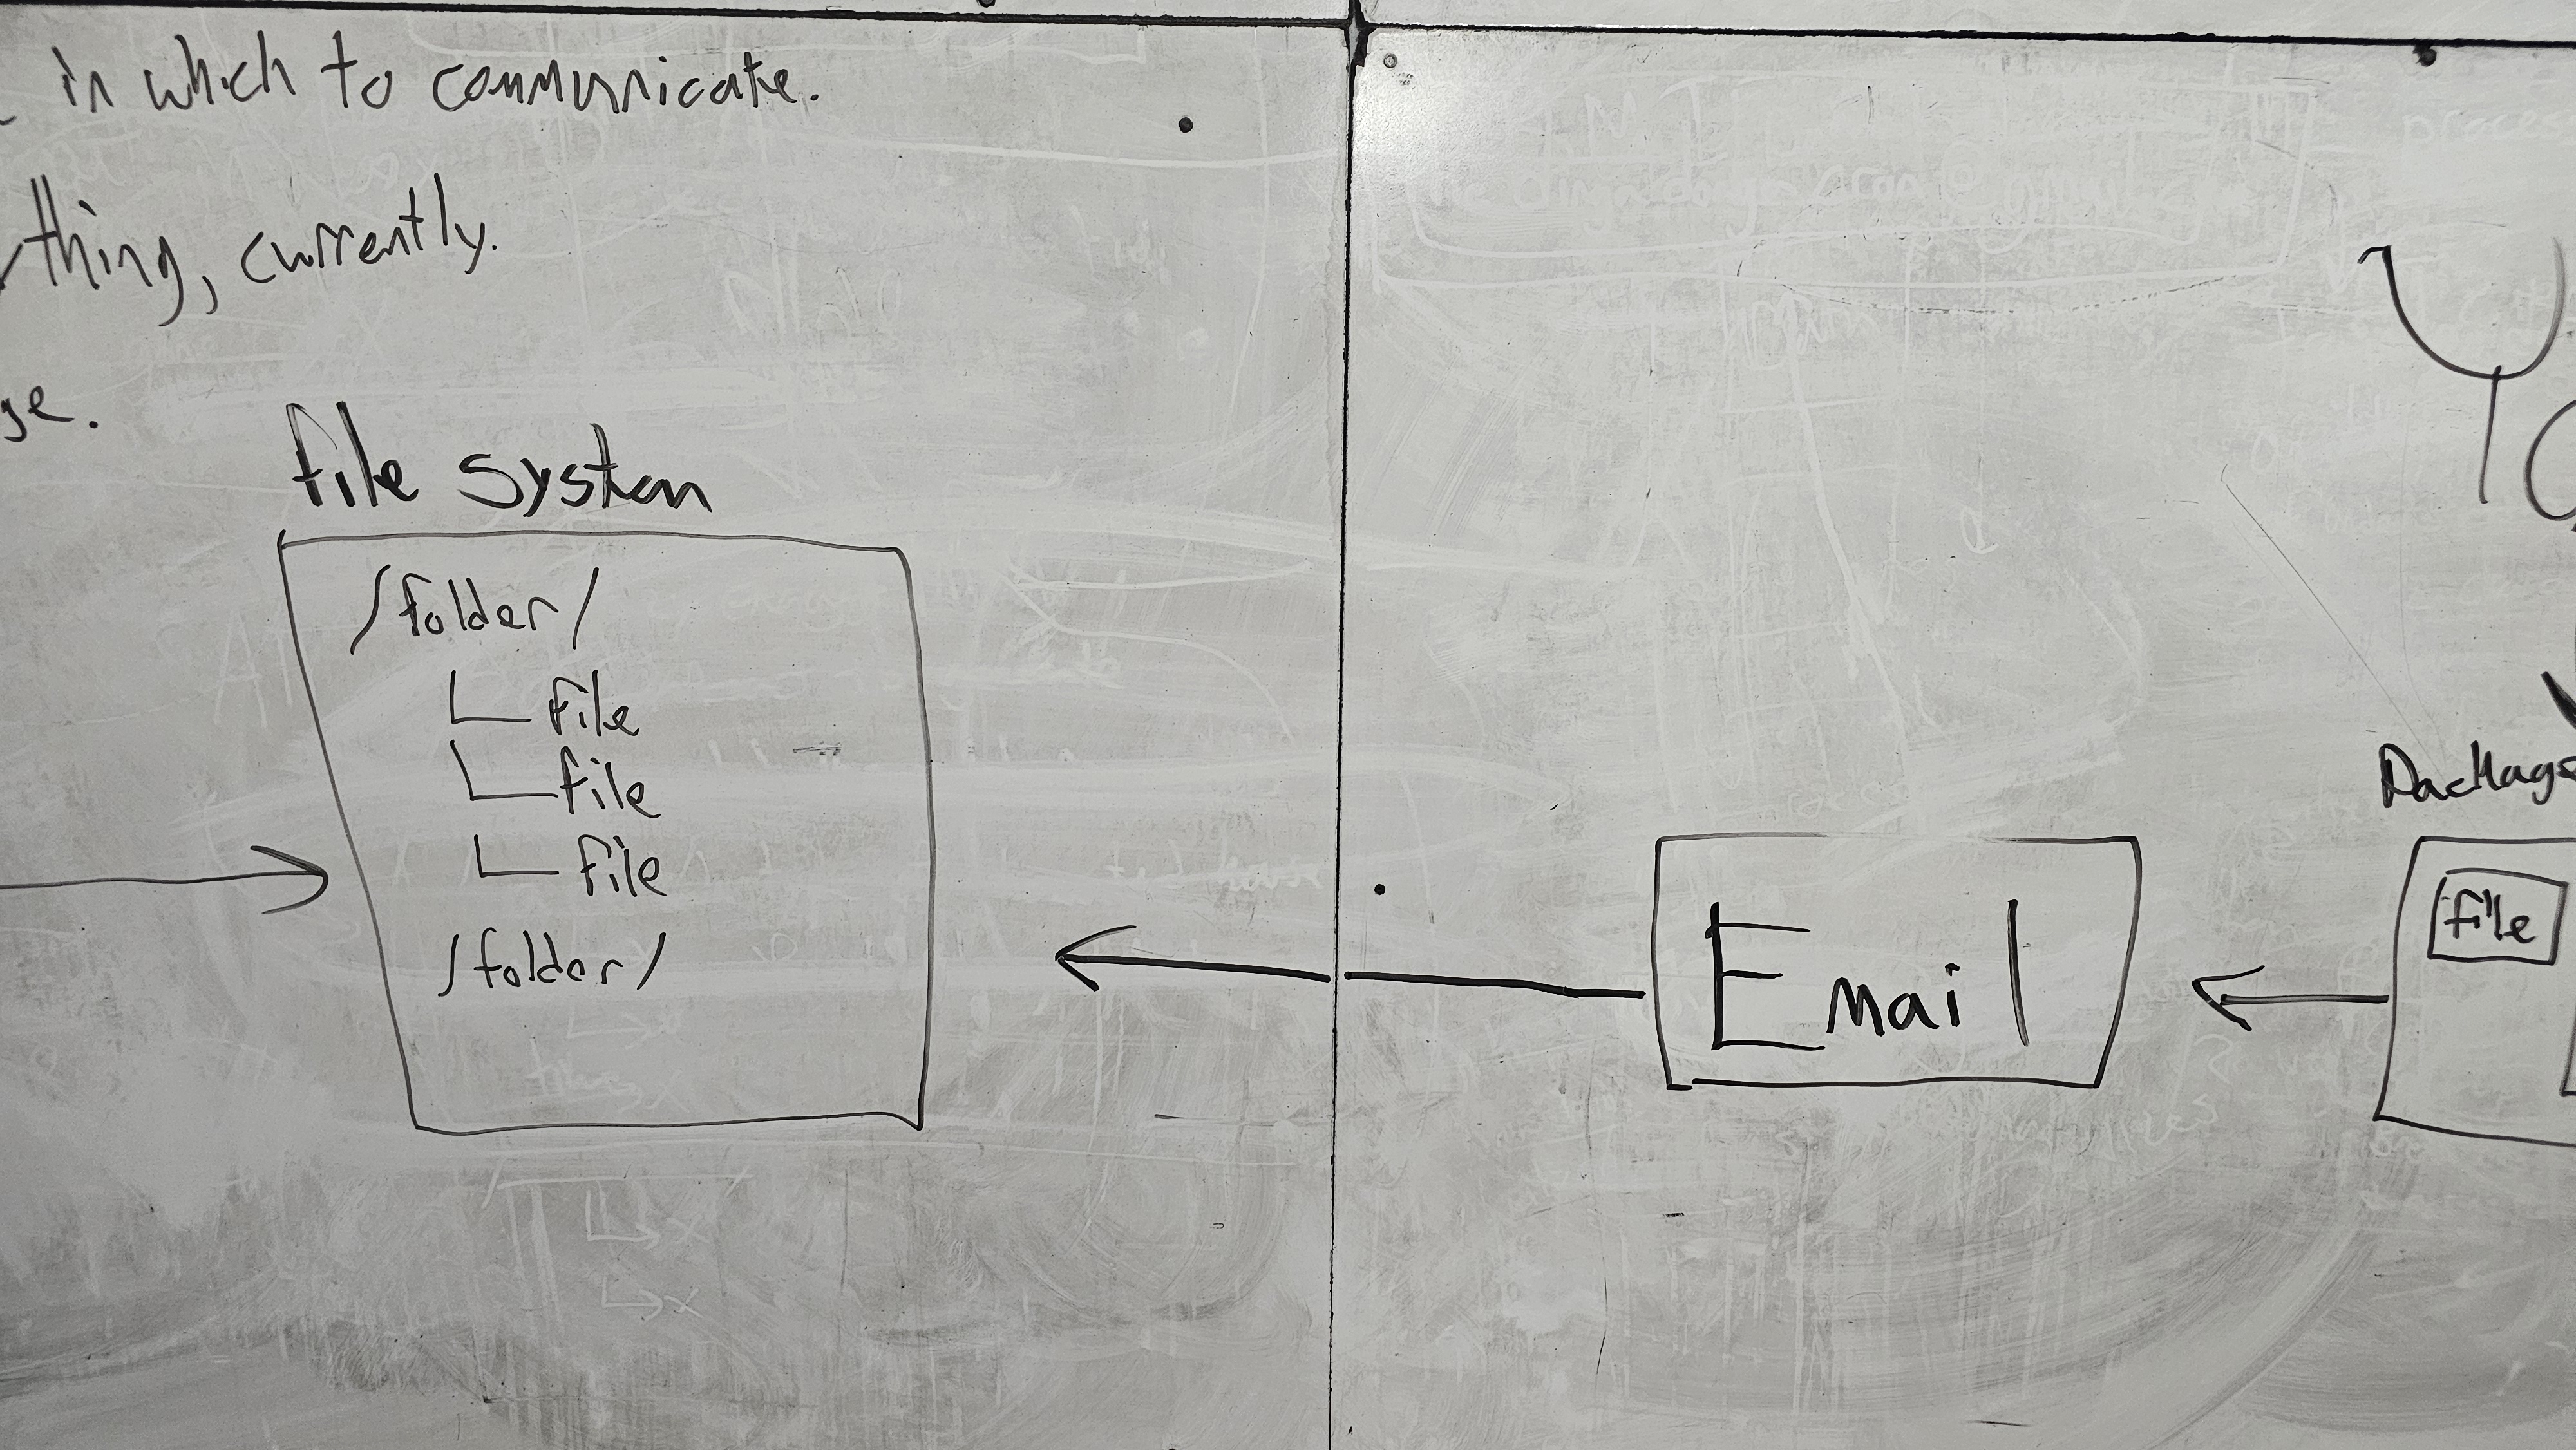 in which to communicate.
thing, currently.
file system
/folder/
file
file
file
/folder/
Email
Package
file